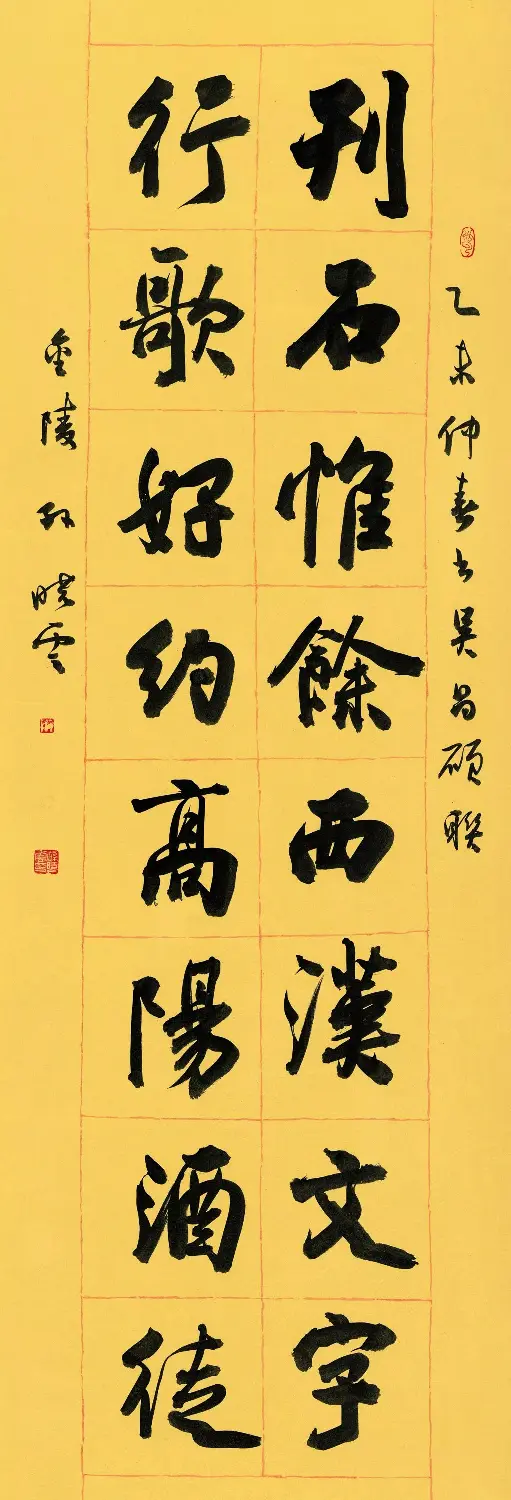 乙未仲春書吳昌碩聯
刊石惟餘西漢文字
行歌好約高陽酒徒
金陵孫曉雲